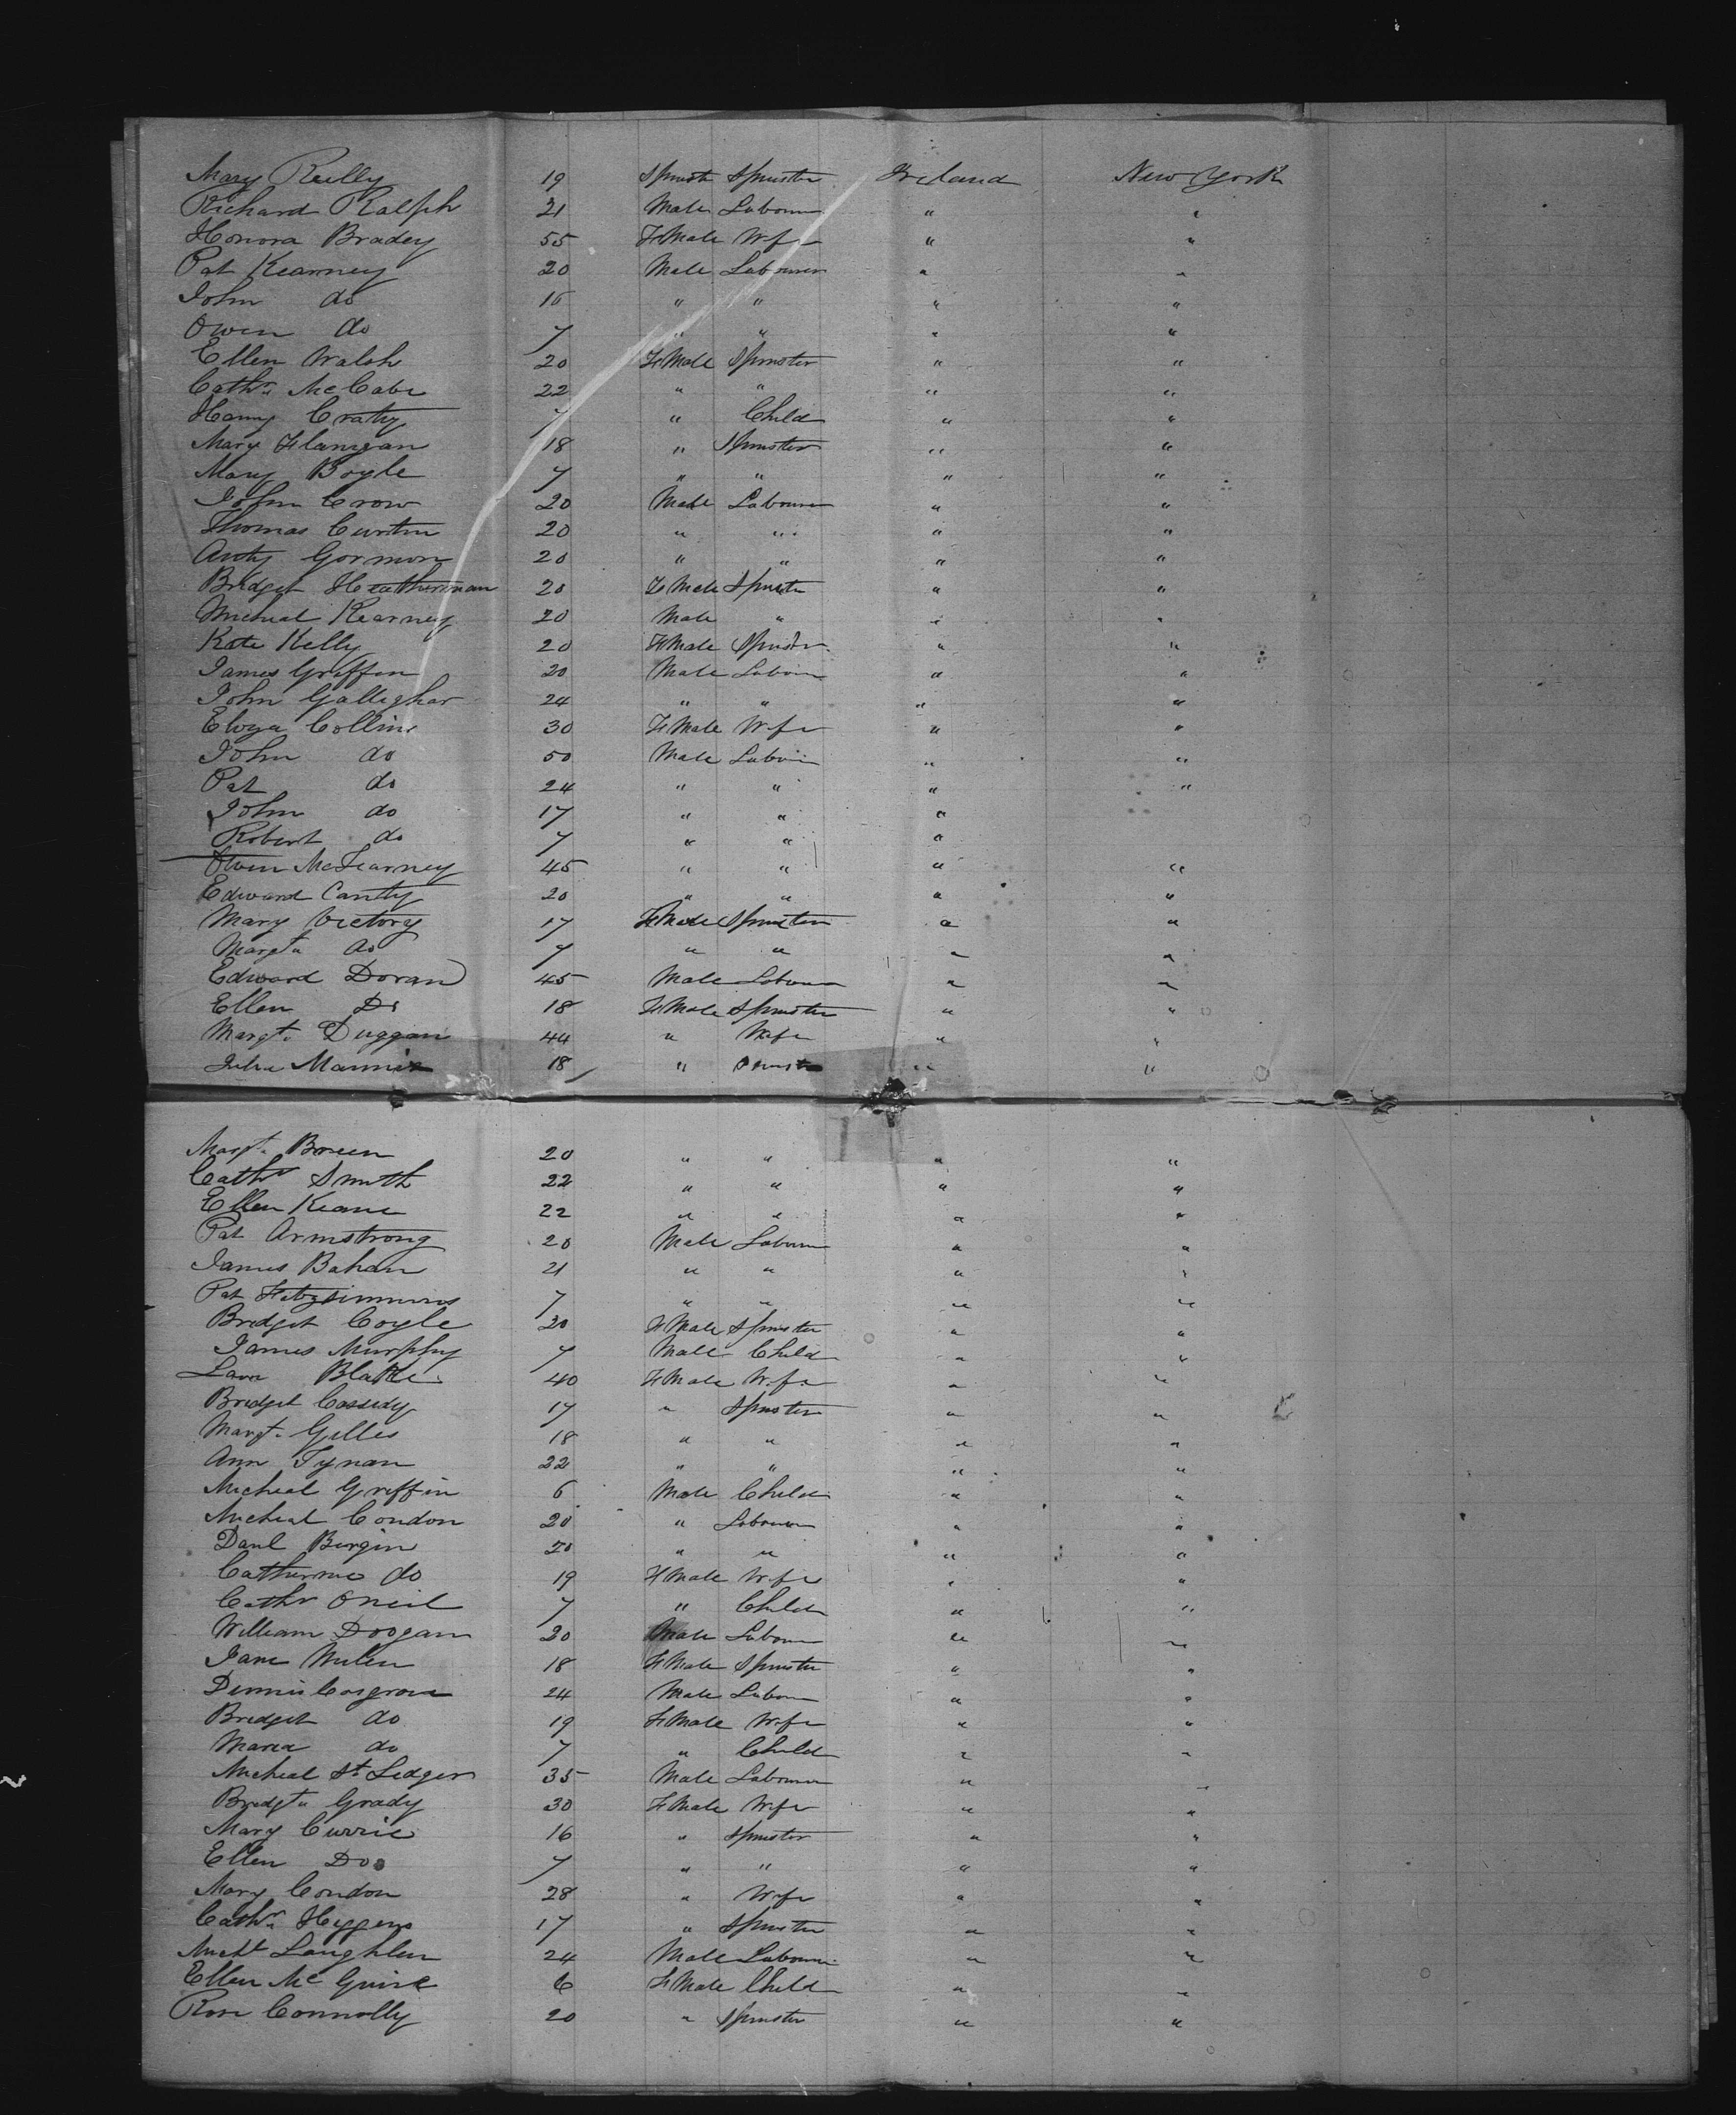 Mary Reilly 19 Spinste Spinster Ireland New York
Richard Ralph 21 Male Labourer " "
Honora Bradey 55 FMale Wife " "
Pat Kearney 20 Male Labourer " "
John do 16 " " " "
Owen do 7 " " " "
Ellen Walsh 20 FMale Spinster " "
Cathr. McCabe 22 " " " "
Crathy 7 " Child " "
Mary Flanigan 18 " Spinster " "
Mary Boyle 7 " " " "
John Crow 20 Male Labourer " "
Thomas Curtin 20 " " " "
Anty Gormon 20 " " " "
Bridget Heatherman 20 FMale Spinster " "
Micheal Kearney 20 Male " " "
Kate Kelly 20 FMale Spinster " "
James Griffen 20 Male Labour " "
John Galleghar 24 " " " "
Collins 30 FMale Wife " "
John do 50 Male Labour " "
Pat do 24 " " " "
John do 17 " " "
Robert do 7 " " "
Owen McTearney 45 " " " "
Edward Canty 20 " " " "
Mary Victory 17 FMale Spinster " "
Margt. do 7 " " " "
Edward Doran 45 Male Labour " "
Ellen Do 18 FMale Spinster " "
Margt. Duggan 44 " Wife " "
Julia Mannix 18 " Spinster " "
Margt. Breen 20 " " " "
Cathr Smith 22 " " " "
Ellen Keane 22 " " " "
Pat Armstrong 20 Male Labour " "
James Bahan 21 " " " "
Pat Fitzsimmons 7 " " " "
Bridget Coyle 20 FMale Spinster " "
James Murphy 7 Male Child " "
Blake 40 FMale Wife " "
Bridget Cassidy 17 " Spinster " "
Margt. Gilles 18 " " " "
Ann Tynan 22 " " " "
Micheal Griffin 6 Male Child " "
Micheal Condon 20 " Labourer " "
Danl Bergin 20 " " " "
Catherine do 19 FMale Wife " "
Cathr Oneil 7 " Child " "
William Doogan 20 Male Labour " "
Jane Milen 18 FMale Spinster " "
Dennis Cosgrove 24 Male Labour " "
Bridget do 19 FMale Wife " "
Maria do 7 " Child " "
Micheal St Ledger 35 Male Labourer " "
Bridgt. Grady 30 FMale Wife " "
Mary Currie 16 " Spinster " "
Ellen Do 7 " " " "
Mary Condon 28 " Wife " "
Cathr. Heggens 17 " Spinster " "
Michl Laughlin 24 Male Labourer " "
Ellen Mc Guire 6 FMale Child " "
Rose Connolly 20 " Spinster " "